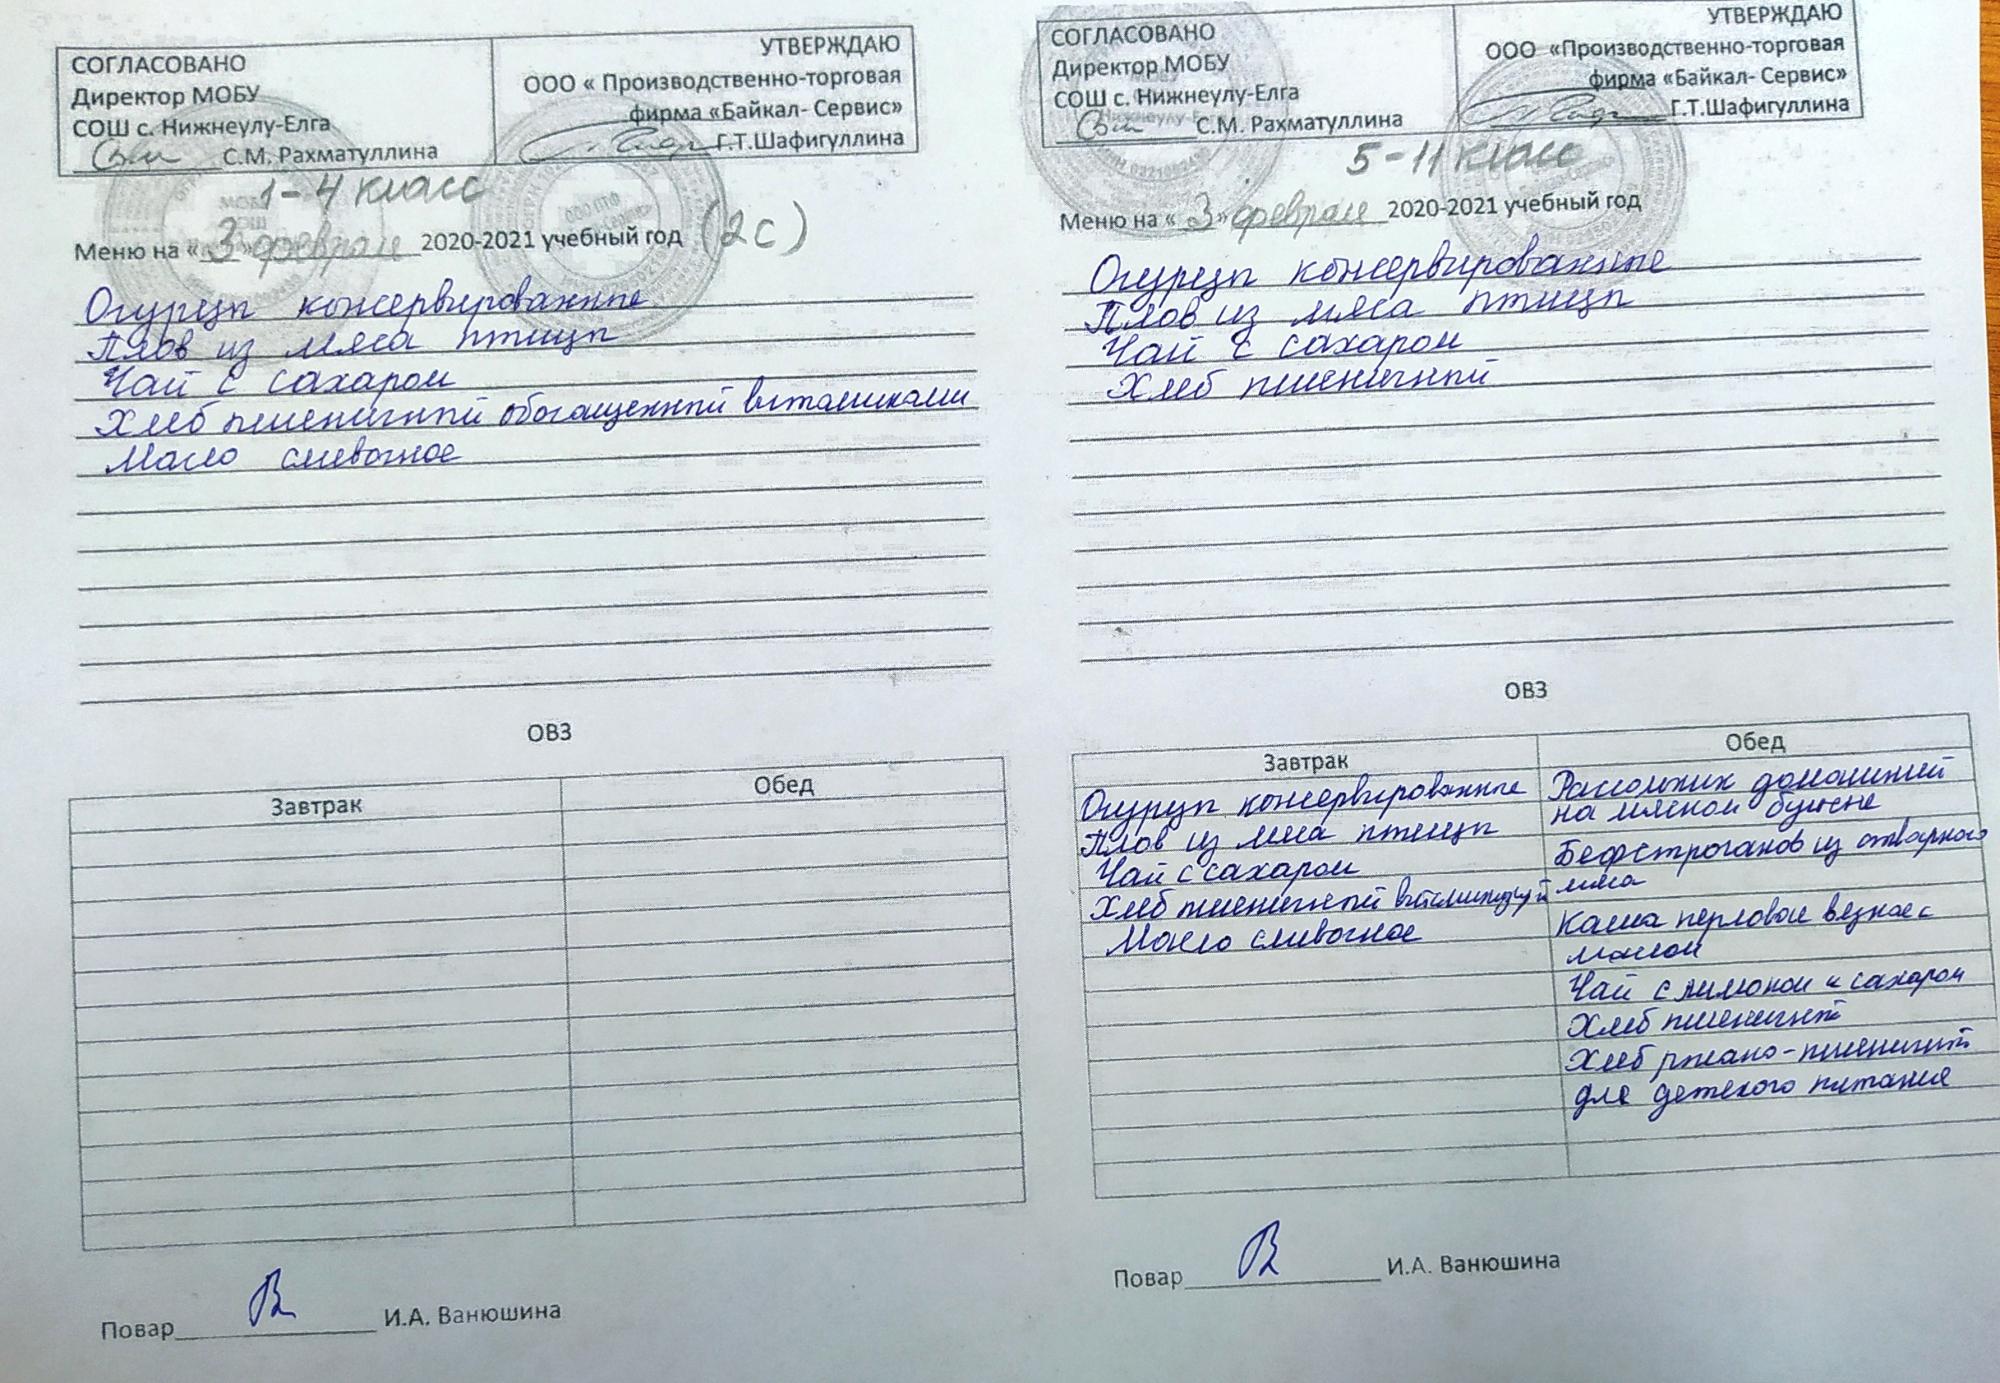 СОГЛАСОВАНО
Директор МОБУ
СОШ с. Нижнеулу-Елга
С.М. Рахматуллина
УТВЕРЖДАЮ
ООО « Производственно-торговая
фирма «Байкал- Сервис»
Г.Т.Шафигуллина
1-4 класс
Меню на «3» февраля 2020-2021 учебный год (2с)
Огурцы консервированные
Плов из мяса птицы
Чай с сахаром
Хлеб пшеничный обогащенный витаминами
Масло сливочное
ОВЗ
Завтрак
Обед
Повар И.А. Ванюшина
СОГЛАСОВАНО
Директор МОБУ
СОШ с. Нижнеулу-Елга
С.М. Рахматуллина
УТВЕРЖДАЮ
ООО «Производственно-торговая
фирма «Байкал- Сервис»
Г.Т.Шафигуллина
5-11 класс
Меню на «3» февраля 2020-2021 учебный год
Огурцы консервированные
Плов из мяса птицы
Чай с сахаром
Хлеб пшеничный
ОВЗ
Завтрак
Огурцы консервированные
Плов из мяса птицы
Чай с сахаром
Хлеб пшеничный
Масло сливочное
Обед
Рассольник домашний
на мясном бульоне
Бефстроганов из отварного
мяса
Каша перловая вязкая с
маслом
Чай с лимоном и сахаром
Хлеб пшеничный
Хлеб ржано-пшеничный
для детского питания
Повар И.А. Ванюшина